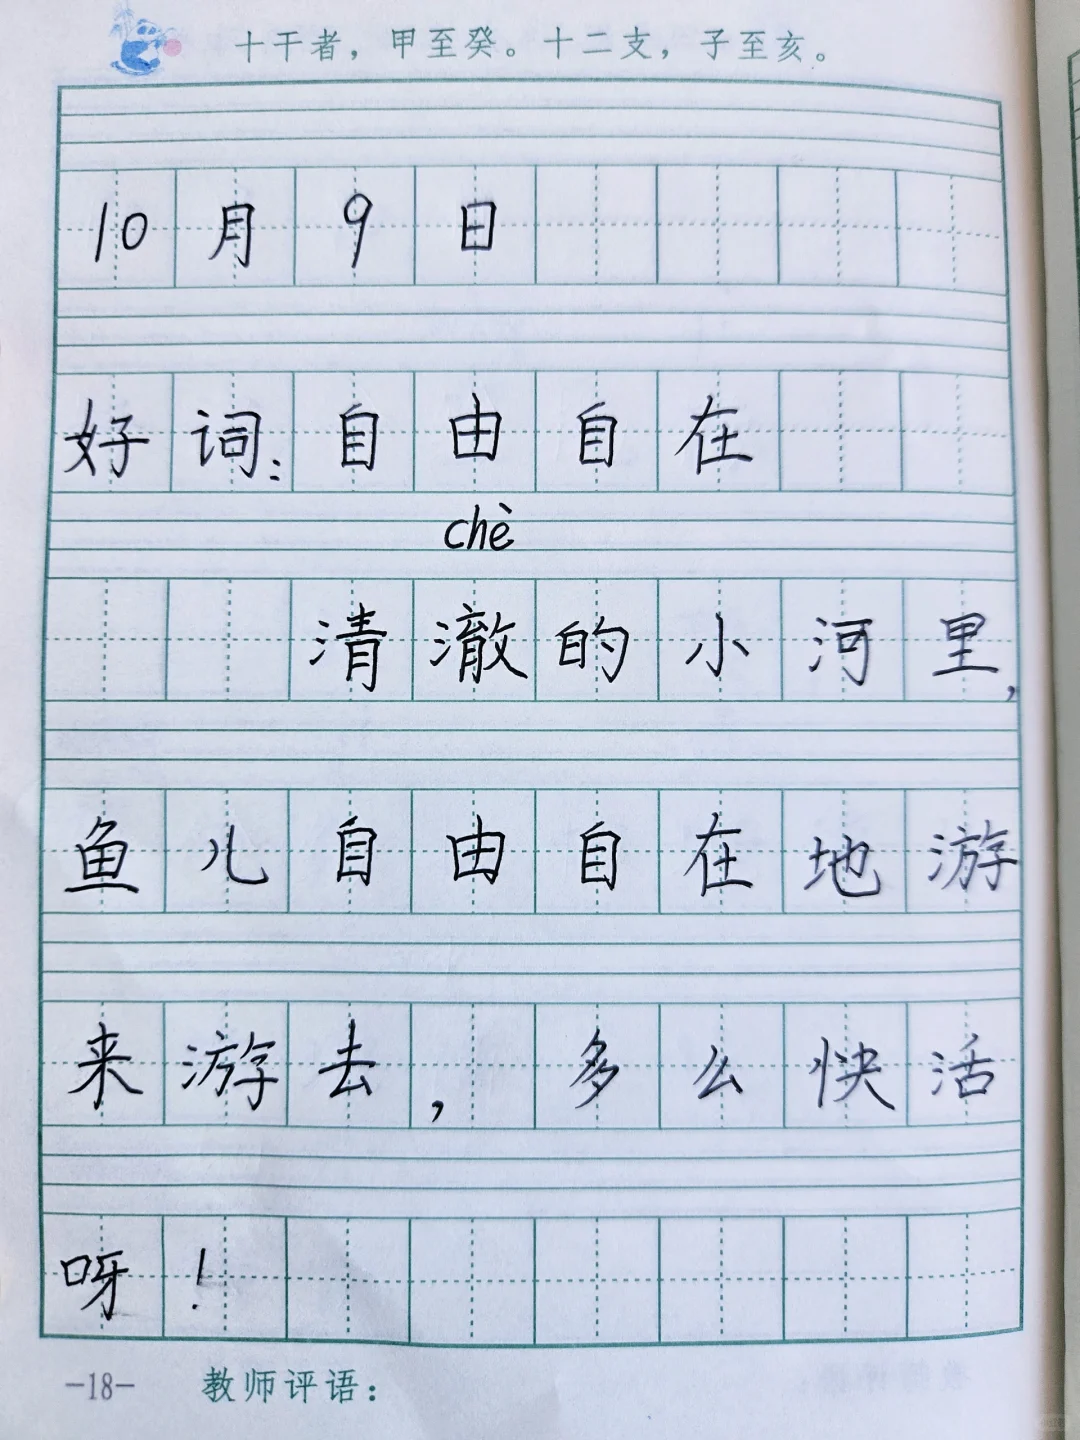 十干者，甲至癸。十二支，子至亥。
10月9日
好词：自由自在
chè
清澈的小河里，
鱼儿自由自在地游
来游去，多么快活
呀！
-18- 教师评语：